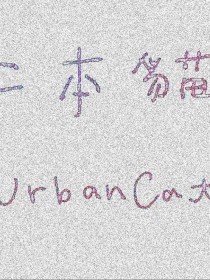 二本貓
UrbanCat